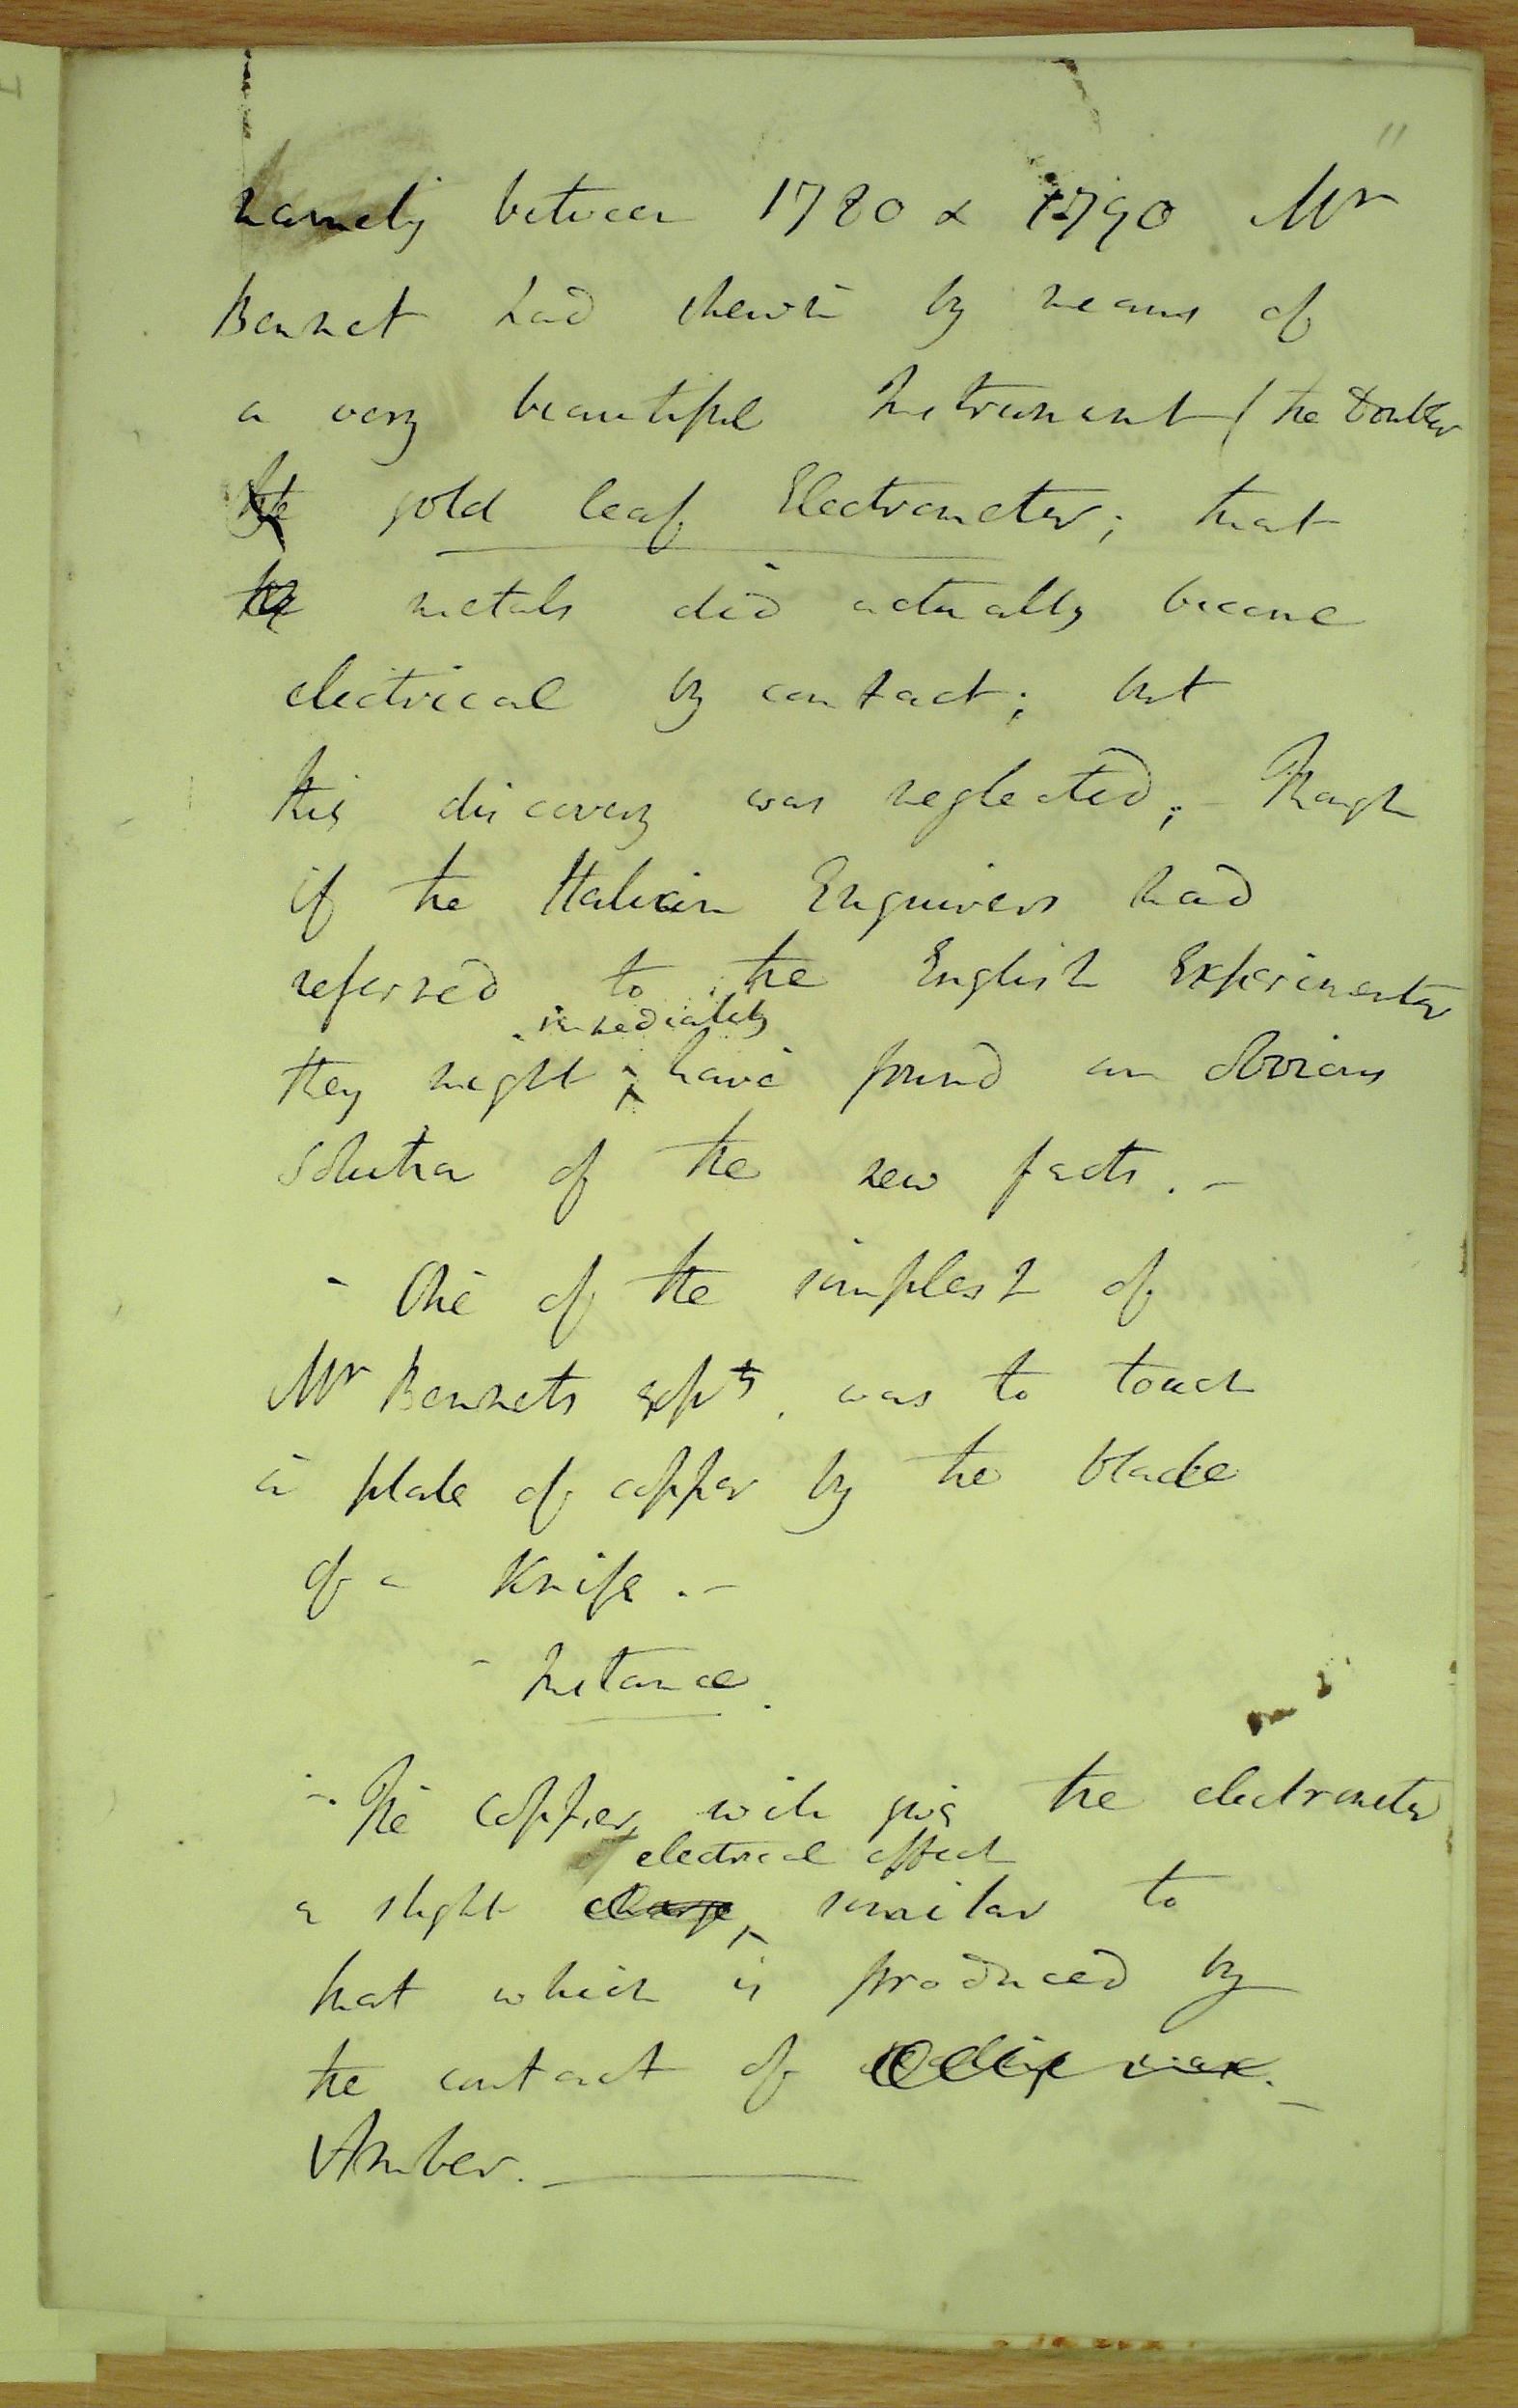 11
namely between 1780 & 1790 Mr
Bennet had shewn by means of
a very beautiful Instrument (the Doubler
gold leaf Electrometer; that
metals did actually become
electrical by contact; but
this discovery was neglected; - Though
if the Italian Enquirers had
referred to the English Experimenter
immediately
they might ^ have found an obvious
solution of the new facts. -
- One of the simplest of
Mr Bennets expts. was to touch
a plate of copper by the blade
of a Knife. -
- Instance.
-. The copper will give the electrometer
electrical effect
a slight charge ^ similar to
that which is produced by
the contact of wax. -
Amber. -